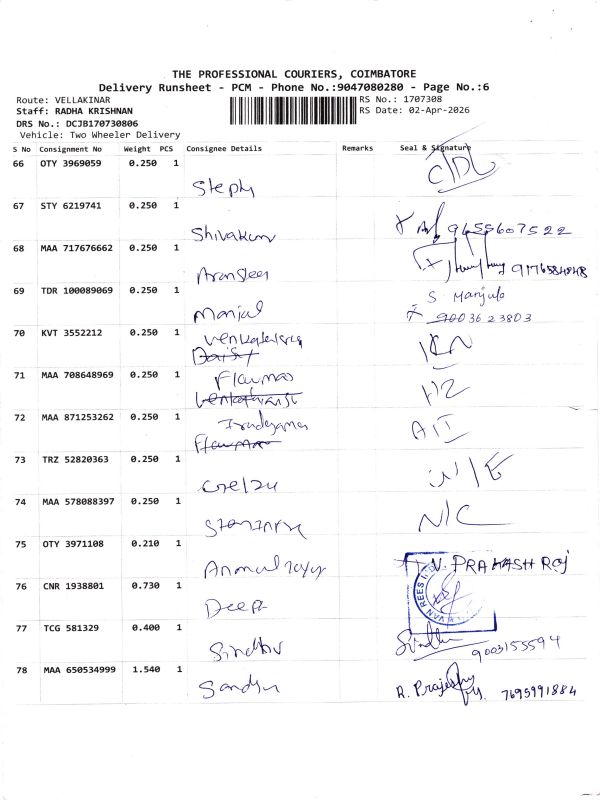 THE PROFESSIONAL COURIERS, COIMBATORE
Delivery Runsheet - PCM - Phone No.:9047080280 - Page No.:6
Route: VELLAKINAR RS No.: 1707308
Staff: RADHA KRISHNAN RS Date: 02-Apr-2026
DRS No.: DCJB170730806
Vehicle: Two Wheeler Delivery
S No Consignment No Weight PCS Consignee Details Remarks Seal & Signature
66 OTY 3969059 0.250 1
Steph
67 STY 6219741 0.250 1
Shivakum 9655607522
68 MAA 717676662 0.250 1
69 TDR 100089069 0.250 1
S Manjula
9003623803
70 KVT 3552212 0.250 1
Daisy
71 MAA 708648969 0.250 1
72 MAA 871253262 0.250 1
73 TRZ 52820363 0.250 1
74 MAA 578088397 0.250 1
N/C
75 OTY 3971108 0.210 1
V. PRAKASH ROJ
76 CNR 1938801 0.730 1
Deepa
VAN REES
77 TCG 581329 0.400 1
Sindhu Sindhu
9003155594
78 MAA 650534999 1.540 1
Sandhya R. Prajeesh 7695991884